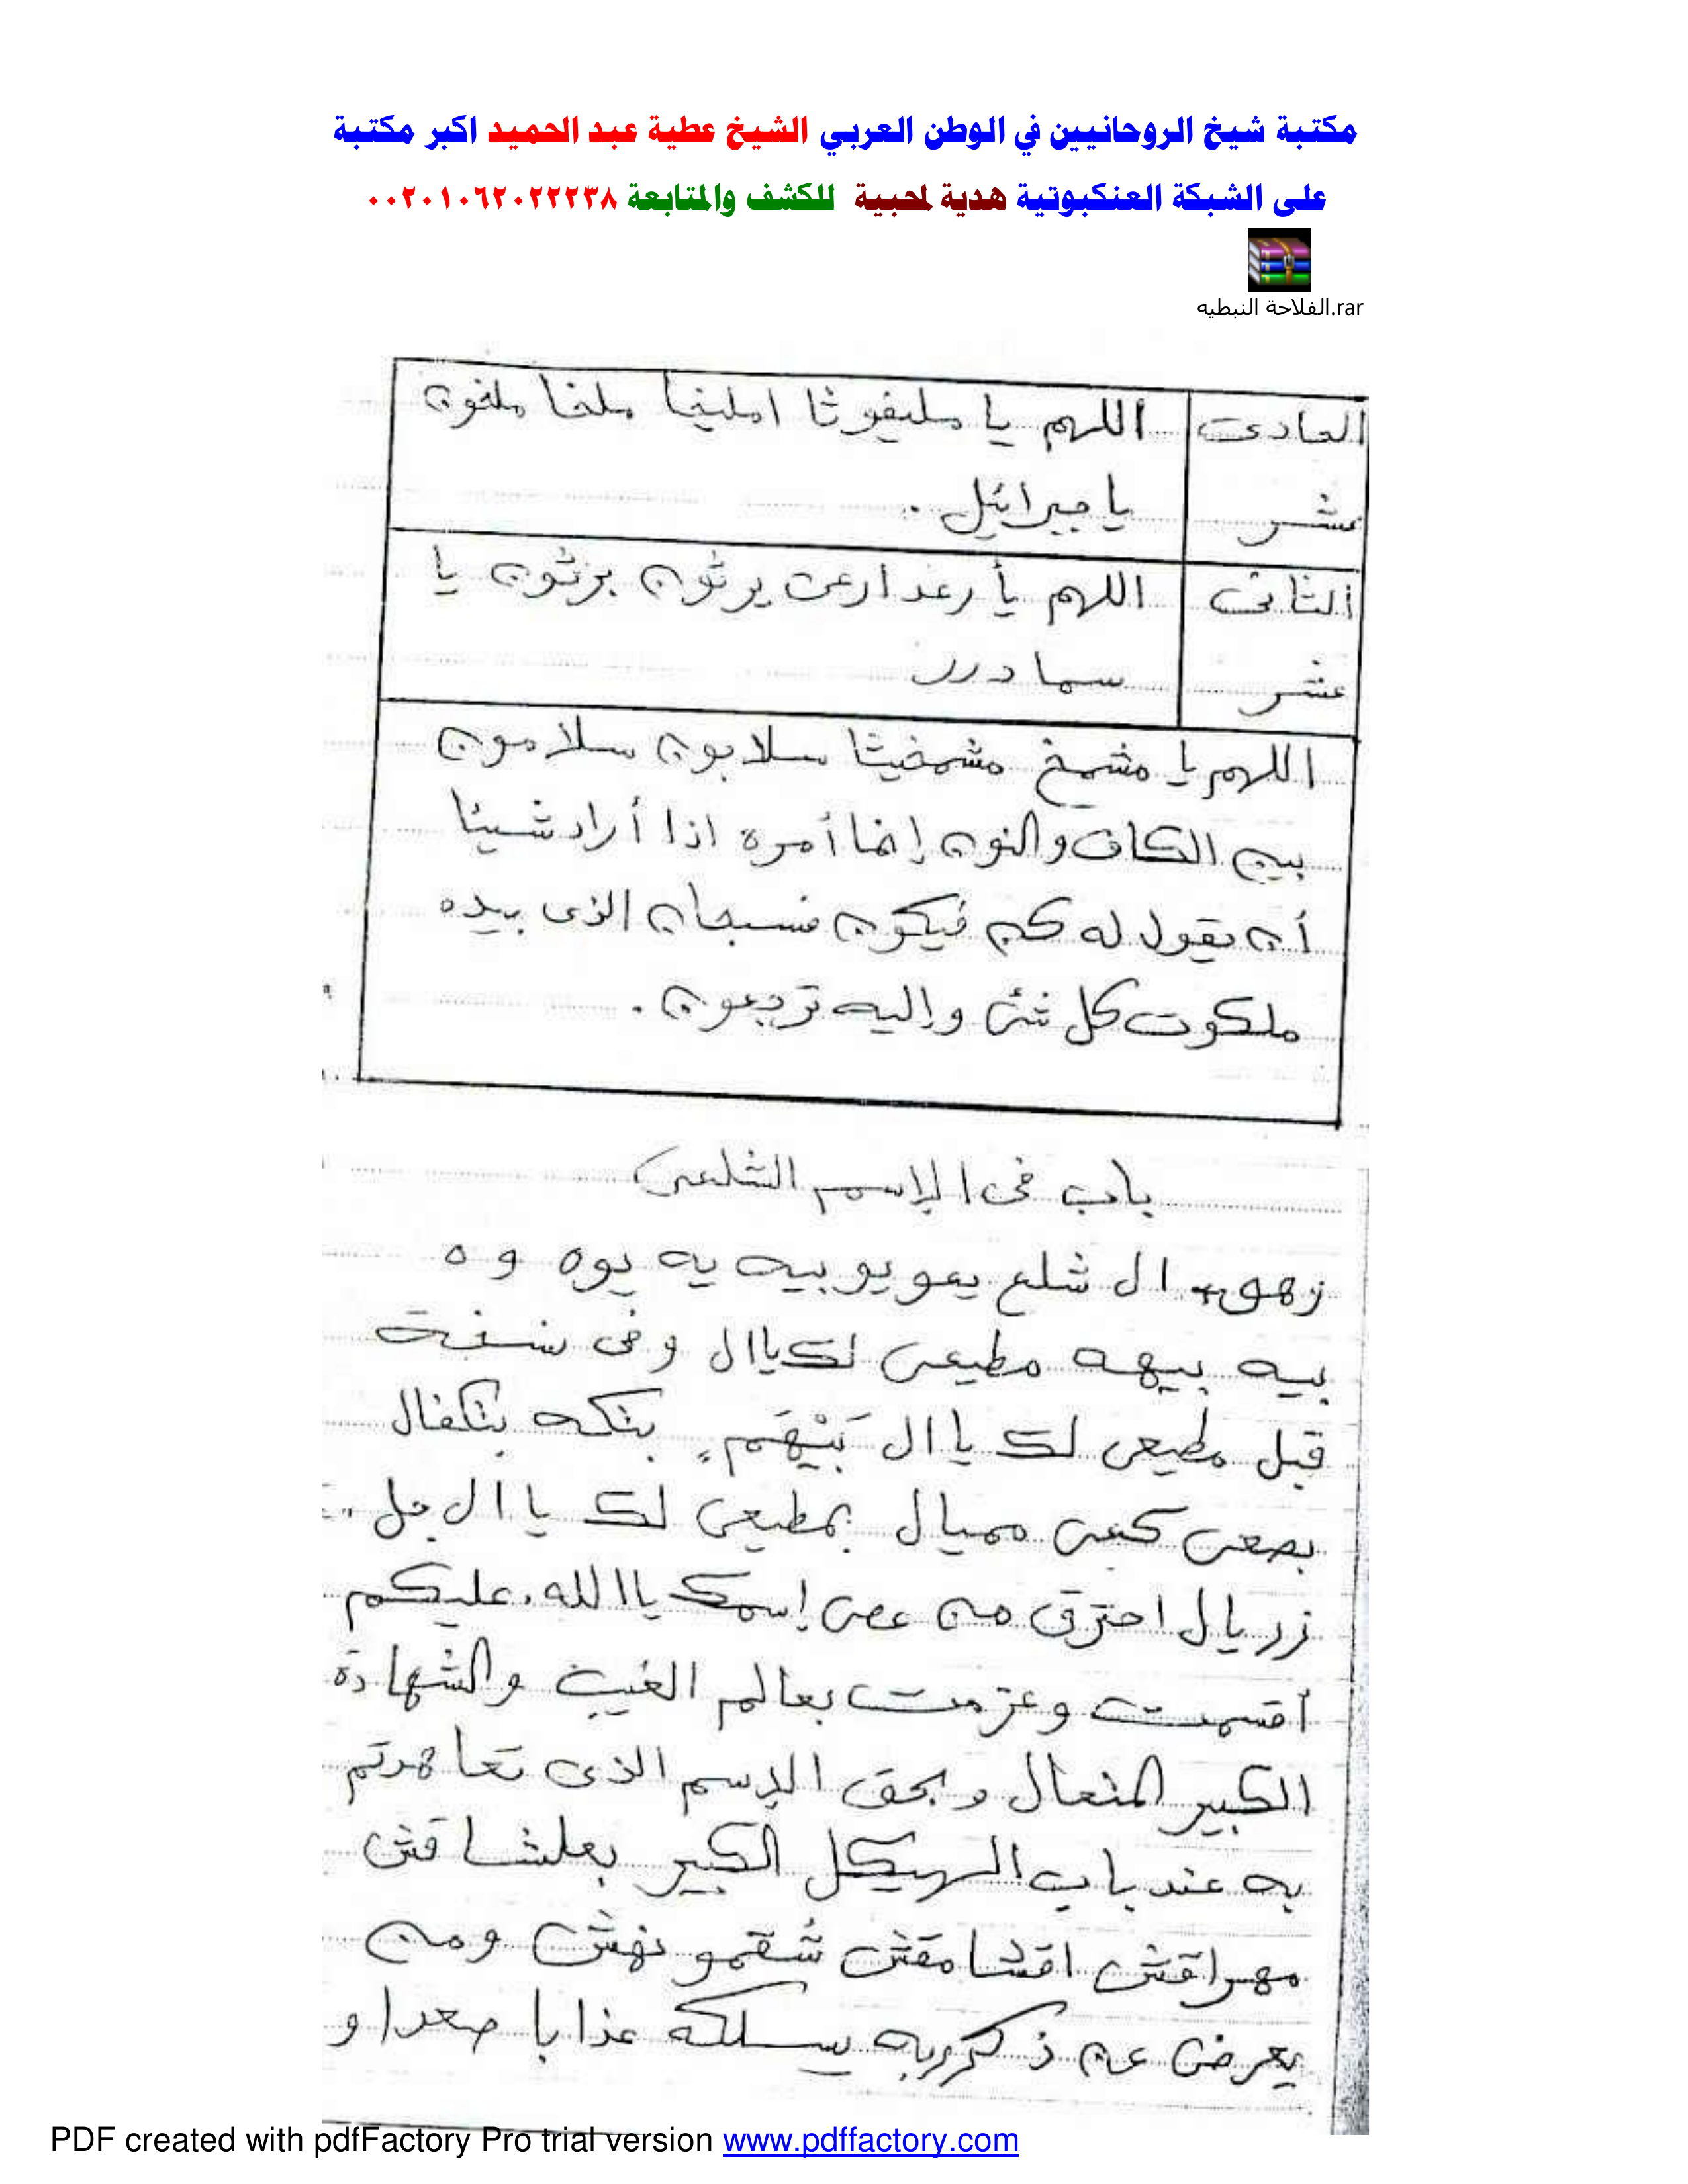 مكتبة شيخ الروحانيين في الوطن العربي الشيخ عطية عبد الحميد اكبر مكتبة
على الشبكة العنكبوتية هدية لمحبية للكشف والمتابعة ٠٠٢٠١٠٦٢٠٢٢٢٣٨
الفلاحة النبطيه.rar
الحادى اللهم يا مليفوثا امليخا ملخا ملخون
عشر يا جبرائيل .
الثانى اللهم يا رعدارعى يرثون برثون يا
عشر سمادرر
اللهم يا مشمخ مشمخيثا سلابون سلامون
بين الكاف والنون إنما أمره اذا أراد شيئا
أن يقول له كن فيكون فسبحان الذى بيده
ملكوت كل شئ وإليه ترجعون .
باب فى الإسم الشلعى
زهو ال شلع يعو يو بيه يه يوه و ه
بيه بيهه مطيعى لك يا ال وفى نسخة
قبل مطيعى لك يا ال بتكه بتكفال
بصعى كعى مميال بمطيعى لك يا ال جل
زريال احترق من عصى إسمك يا الله . عليكم
أقسمت وعزمت بعالم الغيب والشهادة
الكبير المتعال وبحق الإسم الذى تعاهدتم
به عند باب الهيكل الكبير بعلشاقش
مهراقش اقشامقش شقمونهش ومن
يعرض عن ذكر ربه يسلكه عذابا صعدا و
PDF created with pdfFactory Pro trial version www.pdffactory.com